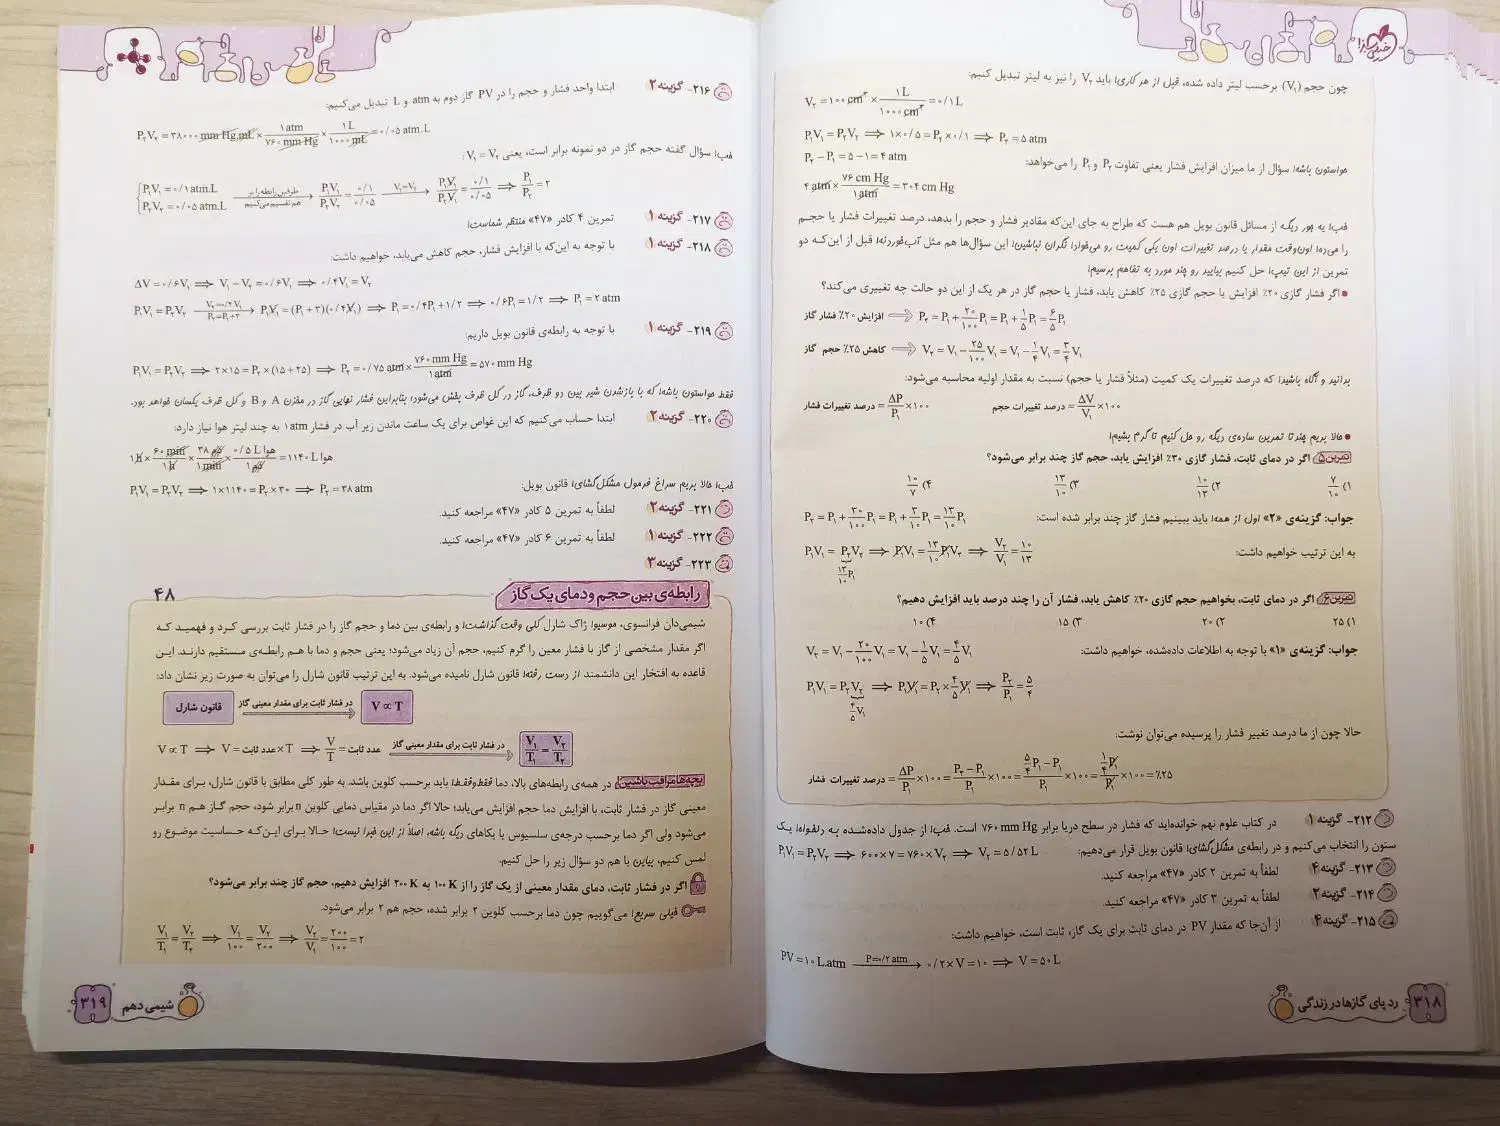 خیلی سبز
چون حجم (V₁) برحسب لیتر داده شده، قبل از هر کاری! باید V₂ را نیز به لیتر تبدیل کنیم:
V₂ = ۱۰۰ cm³ × ۱L / ۱۰۰۰ cm³ = ۰/۱ L
P₁V₁ = P₂V₂ ⟹ ۱×۰/۵ = P₂ × ۰/۱ ⟹ P₂ = ۵ atm
حواستون باشه! سؤال از ما میزان افزایش فشار یعنی تفاوت P₂ و P₁ را می‌خواهد: P₂ − P₁ = ۵ − ۱ = ۴ atm
۴ atm × ۷۶ cm Hg / ۱ atm = ۳۰۴ cm Hg
خب! یه جور دیگه از مسائل قانون بویل هم هست که طراح به جای این‌که مقادیر فشار و حجم را بدهد، درصد تغییرات فشار یا حجم
را می‌ده! اون‌وقت مقدار یا درصد تغییرات اون یکی کمیت رو می‌خواد! نگران نباشین! این سؤال‌ها هم مثل آب خوردنه! قبل از این‌که دو
تمرین از این تیپ! حل کنیم بیایید رو چند مورد به تفاهم برسیم!
• اگر فشار گازی ۲۰٪ افزایش یا حجم گازی ۲۵٪ کاهش یابد، فشار یا حجم گاز در هر یک از این دو حالت چه تغییری می‌کند؟
افزایش ۲۰٪ فشار گاز ⟹ P₂ = P₁ + ۲۰/۱۰۰ P₁ = P₁ + ۱/۵ P₁ = ۶/۵ P₁
کاهش ۲۵٪ حجم گاز ⟹ V₂ = V₁ − ۲۵/۱۰۰ V₁ = V₁ − ۱/۴ V₁ = ۳/۴ V₁
بدانید و آگاه باشید! که درصد تغییرات یک کمیت (مثلاً فشار یا حجم) نسبت به مقدار اولیه محاسبه می‌شود:
درصد تغییرات فشار = ΔP/P₁ × ۱۰۰ درصد تغییرات حجم = ΔV/V₁ × ۱۰۰
• حالا بریم چند تا تمرین ساده‌ی دیگه رو حل کنیم تا گرم بشیم!
تمرین ۵ اگر در دمای ثابت، فشار گازی ۳۰٪ افزایش یابد، حجم گاز چند برابر می‌شود؟
۱) ۷/۱۰ ۲) ۱۰/۱۳ ۳) ۱۳/۱۰ ۴) ۱۰/۷
جواب: گزینه‌ی «۲» اول از همه! باید ببینیم فشار گاز چند برابر شده است: P₂ = P₁ + ۳۰/۱۰۰ P₁ = P₁ + ۳/۱۰ P₁ = ۱۳/۱۰ P₁
به این ترتیب خواهیم داشت: P₁V₁ = P₂V₂ ⟹ P₁V₁ = ۱۳/۱۰ P₁V₂ ⟹ V₂/V₁ = ۱۰/۱۳
۱۳/۱۰ P₁
تمرین ۶ اگر در دمای ثابت، بخواهیم حجم گازی ۲۰٪ کاهش یابد، فشار آن را چند درصد باید افزایش دهیم؟
۱) ۲۵ ۲) ۲۰ ۳) ۱۵ ۴) ۱۰
جواب: گزینه‌ی «۱» با توجه به اطلاعات داده‌شده، خواهیم داشت: V₂ = V₁ − ۲۰/۱۰۰ V₁ = V₁ − ۱/۵ V₁ = ۴/۵ V₁
P₁V₁ = P₂V₂ ⟹ P₁V₁ = P₂ × ۴/۵ V₁ ⟹ P₂/P₁ = ۵/۴
۴/۵ V₁
حالا چون از ما درصد تغییر فشار را پرسیده می‌توان نوشت:
درصد تغییرات فشار = ΔP/P₁ × ۱۰۰ = P₂ − P₁ / P₁ × ۱۰۰ = ۵/۴ P₁ − P₁ / P₁ × ۱۰۰ = ۱/۴ P₁ / P₁ × ۱۰۰ = ٪۲۵
۲۱۲- گزینه ۱ در کتاب علوم نهم خوانده‌اید که فشار در سطح دریا برابر ۷۶۰ mm Hg است. خب! از جدول داده‌شده به دلخواه! یک
ستون را انتخاب می‌کنیم و در رابطه‌ی مشکل‌گشای! قانون بویل قرار می‌دهیم: P₁V₁ = P₂V₂ ⟹ ۶۰۰×۷ = ۷۶۰×V₂ ⟹ V₂ = ۵/۵۲ L
۲۱۳- گزینه ۴ لطفاً به تمرین ۲ کادر «۴۷» مراجعه کنید.
۲۱۴- گزینه ۲ لطفاً به تمرین ۳ کادر «۴۷» مراجعه کنید.
۲۱۵- گزینه ۴ از آن‌جا که مقدار PV در دمای ثابت برای یک گاز، ثابت است، خواهیم داشت:
PV = ۱۰ L.atm P=۰/۲ atm → ۰/۲×V = ۱۰ ⟹ V = ۵۰ L
۳۱۸ رد پای گازها در زندگی
۲۱۶- گزینه ۲ ابتدا واحد فشار و حجم را در PV گاز دوم به atm و L تبدیل می‌کنیم:
P₂V₂ = ۳۸۰۰۰ mm Hg.mL × ۱ atm / ۷۶۰ mm Hg × ۱ L / ۱۰۰۰ mL = ۰/۰۵ atm.L
خب! سؤال گفته حجم گاز در دو نمونه برابر است، یعنی V₁ = V₂:
{P₁V₁ = ۰/۱ atm.L
P₂V₂ = ۰/۰۵ atm.L طرفین رابطه را بر هم تقسیم می‌کنیم → P₁V₁/P₂V₂ = ۰/۱/۰/۰۵ V₁=V₂ → P₁V₁/P₂V₁ = ۰/۱/۰/۰۵ ⟹ P₁/P₂ = ۲
۲۱۷- گزینه ۱ تمرین ۴ کادر «۴۷» منتظر شماست!
۲۱۸- گزینه ۱ با توجه به این‌که با افزایش فشار، حجم کاهش می‌یابد، خواهیم داشت:
ΔV = ۰/۶V₁ ⟹ V₁ − V₂ = ۰/۶V₁ ⟹ ۰/۴V₁ = V₂
P₁V₁ = P₂V₂ V₂=۰/۴V₁ P₂=P₁+۳ → P₁V₁ = (P₁ + ۳)(۰/۴V₁) ⟹ P₁ = ۰/۴P₁ + ۱/۲ ⟹ ۰/۶P₁ = ۱/۲ ⟹ P₁ = ۲ atm
۲۱۹- گزینه ۱ با توجه به رابطه‌ی قانون بویل داریم:
P₁V₁ = P₂V₂ ⟹ ۲×۱۵ = P₂ × (۱۵ + ۲۵) ⟹ P₂ = ۰/۷۵ atm × ۷۶۰ mm Hg / ۱ atm = ۵۷۰ mm Hg
فقط حواستون باشه! که با باز شدن شیر بین دو ظرف، گاز در کل ظرف پخش می‌شود؛ بنابراین فشار نهایی گاز در مخزن A و B و کل ظرف یکسان خواهد بود.
۲۲۰- گزینه ۲ ابتدا حساب می‌کنیم که این غواص برای یک ساعت ماندن زیر آب در فشار ۱atm به چند لیتر هوا نیاز دارد:
۱ h × ۶۰ min / ۱ h × ۳۸ دم / ۱ min × ۰/۵ L هوا / ۱ دم = ۱۱۴۰ L هوا
خب! حالا بریم سراغ فرمول مشکل‌گشای! قانون بویل: P₁V₁ = P₂V₂ ⟹ ۱×۱۱۴۰ = P₂ × ۳۰ ⟹ P₂ = ۳۸ atm
۲۲۱- گزینه ۲ لطفاً به تمرین ۵ کادر «۴۷» مراجعه کنید.
۲۲۲- گزینه ۱ لطفاً به تمرین ۶ کادر «۴۷» مراجعه کنید.
۲۲۳- گزینه ۳
رابطه‌ی بین حجم و دمای یک گاز ۴۸
شیمی‌دان فرانسوی، موسیو! ژاک شارل کلی وقت گذاشت! و رابطه‌ی بین دما و حجم گاز را در فشار ثابت بررسی کرد و فهمید که
اگر مقدار مشخصی از گاز با فشار معین را گرم کنیم، حجم آن زیاد می‌شود؛ یعنی حجم و دما با هم رابطه‌ی مستقیم دارند. این
قاعده به افتخار این دانشمند از دست رفته! قانون شارل نامیده می‌شود. به این ترتیب قانون شارل را می‌توان به صورت زیر نشان داد:
قانون شارل در فشار ثابت برای مقدار معینی گاز V ∝ T
V ∝ T ⟹ V = عدد ثابت × T ⟹ V/T = عدد ثابت در فشار ثابت برای مقدار معینی گاز V₁/T₁ = V₂/T₂
بچه‌ها مراقب باشین! در همه‌ی رابطه‌های بالا، دما فقط و فقط! باید برحسب کلوین باشد. به طور کلی مطابق با قانون شارل، برای مقدار
معینی گاز در فشار ثابت، با افزایش دما حجم افزایش می‌یابد؛ حالا اگر دما در مقیاس دمایی کلوین n برابر شود، حجم گاز هم n برابر
می‌شود ولی اگر دما برحسب درجه‌ی سلسیوس یا یکاهای دیگه باشه، اصلاً از این خبرا نیست! حالا برای این‌که حساسیت موضوع رو
لمس کنیم، بیاین با هم دو سؤال زیر را حل کنیم.
اگر در فشار ثابت، دمای مقدار معینی از یک گاز را از ۱۰۰ K به ۲۰۰ K افزایش دهیم، حجم گاز چند برابر می‌شود؟
خیلی سریع! می‌گوییم چون دما برحسب کلوین ۲ برابر شده، حجم هم ۲ برابر می‌شود.
V₁/T₁ = V₂/T₂ ⟹ V₁/۱۰۰ = V₂/۲۰۰ ⟹ V₂/V₁ = ۲۰۰/۱۰۰ = ۲
شیمی دهم ۳۱۹